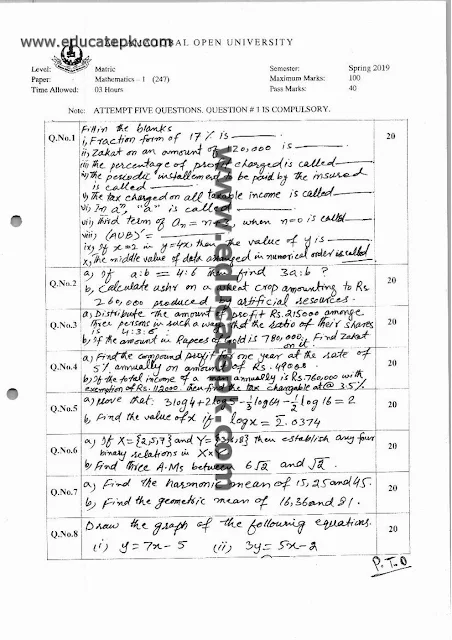 www.educatepk.com
BAL OPEN UNIVERSITY
Level: Matric Semester: Spring 2019
Paper: Mathematics – I (247) Maximum Marks: 100
Time Allowed: 03 Hours Pass Marks: 40
Note: ATTEMPT FIVE QUESTIONS. QUESTION # 1 IS COMPULSORY.
Q.No.1 Fill in the blanks 20
i, Fraction form of 17% is
ii, Zakat on an amount of 120,000 is
iii, The percentage of profit charged is called
iv, The periodic installement to be paid by the insured
is called
v, The tax charged on all taxable income is called
vi, In aⁿ, "a" is called
vii, third term of aₙ = n+3, when n=0 is called
viii, (AUB)' =
ix, If x=2 in y=4x, then the value of y is
x, The middle value of data arranged in numorical order is called
Q.No.2 a, If a:b = 4:6 then find 3a:b ? 20
b, Calculate ushr on a wheat crop amounting to Rs
260,000 produced by artificial resources.
Q.No.3 a, Distribute the amount of profit Rs.215000 amonge 20
three persons in such a way that the ratio of their shares
is 4:3:6.
b, If the amount in Rupees of gold is 780,000, Find Zakat
on it.
Q.No.4 a, Find the compound profit in one year at the rate of 20
5% annually on amount of Rs.
b, If the total income of a man annually is Rs.760,000 with
exemption of Rs. then find the tax chargable at @ 3.5%
Q.No.5 a, Prove that: 3log4+2log5-⅓log64-½log16=2 20
b, Find the value of x if logx = 2̄.0374
Q.No.6 a, If X={2,5,7} and Y= then establish any four 20
binary relations in X×Y
b, Find three A.Ms between 6√2 and √2.
Q.No.7 a, Find the harmonic mean of 15, 25 and 45. 20
b, Find the geometric mean of 16, 36 and 81.
Q.No.8 Draw the graph of the following equations. 20
(i) y=7x-5 (ii) 3y=5x-2
P.T.O
www.educatepk.com